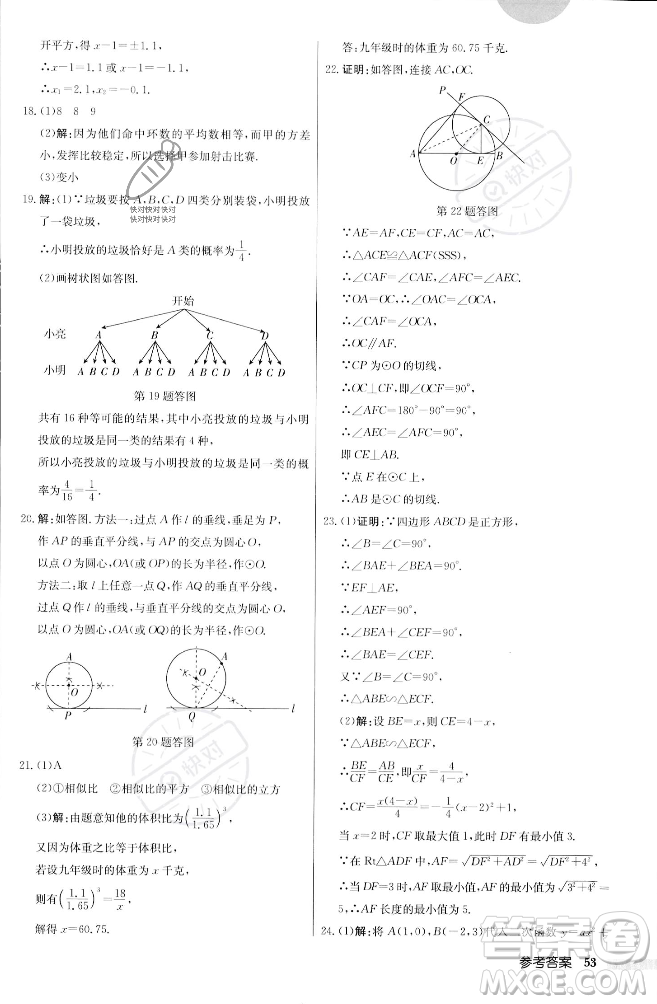 开平方,得 x−1=±1.1,
∴x−1=1.1 或 x−1=−1.1,
∴x₁=2.1,x₂=−0.1.
18.(1)8 8 9
(2)解:因为他们命中环数的平均数相等,而甲的方差
小,发挥比较稳定,所以选择甲参加射击比赛.
(3)变小
19.解:(1)∵垃圾要按 A,B,C,D 四类分别装袋,小明投放
了一袋垃圾,
∴小明投放的垃圾恰好是 A 类的概率为1/4.
(2)画树状图如答图.
开始
小亮 A B C D
小明 A B C D A B C D A B C D A B C D
第 19 题答图
共有 16 种等可能的结果,其中小亮投放的垃圾与小明
投放的垃圾是同一类的结果有 4 种,
所以小亮投放的垃圾与小明投放的垃圾是同一类的概
率为4/16=1/4.
20.解:如答图.方法一:过点 A 作 l 的垂线,垂足为 P,
作 AP 的垂直平分线,与 AP 的交点为圆心 O,
以点 O 为圆心,OA(或 OP)的长为半径,作⊙O.
方法二:取 l 上任意一点 Q,作 AQ 的垂直平分线,
过点 Q 作 l 的垂线,与垂直平分线的交点为圆心 O,
以点 O 为圆心,OA(或 OQ)的长为半径,作⊙O.
A O P l
A O Q l
第 20 题答图
21.(1)A
(2)①相似比 ②相似比的平方 ③相似比的立方
(3)解:由题意知他的体积比为(1.1/1.65)³,
又因为体重之比等于体积比,
若设九年级时的体重为 x 千克,
则有(1.1/1.65)³=18/x,
解得 x=60.75.
答:九年级时的体重为 60.75 千克.
22.证明:如答图,连接 AC,OC.
P F C A O E B
第 22 题答图
∵AE=AF,CE=CF,AC=AC,
∴△ACE≌△ACF(SSS),
∴∠CAF=∠CAE,∠AFC=∠AEC.
∵OA=OC,
∴∠CAE=∠ACO,
∴∠CAF=∠ACO,
∴OC∥AF.
∵CP 为⊙O 的切线,
∴OC⊥CF,即∠OCF=90°,
∴∠AFC=180°−90°=90°,
∴∠AEC=∠AFC=90°,
即 CE⊥AE.
∵点 E 在⊙C 上,
∴AB 是⊙C 的切线.
23.(1)证明:∵四边形 ABCD 是正方形,
∴∠B=∠C=90°.
∵EF⊥AE,
∴∠AEF=90°,
∴∠BEA+∠CEF=90°,
∴∠BAE=∠CEF.
又∵∠B=∠C=90°,
∴△ABE∽△ECF.
(2)解:设 BE=x,则 CE=4−x,
∵△ABE∽△ECF,
∴BE/CF=AB/CE,即x/CF=4/(4−x),
∴CF=x(4−x)/4=−1/4(x−2)²+1,
当 x=2 时,CF 取最大值 1,此时 DF 有最小值 3.
∵在 Rt△ADF 中,AF=√(DF²+AD²)=√(DF²+4²),
∴当 DF=3 时,AF 取最小值,AF 的最小值为√(3²+4²)=
5,∴AF 长度的最小值为 5.
24.(1)解:将 A(1,0),B(−2,3)代入二次函数 y=ax²+
参考答案 53
快对快对快对
快对快对快对
快对
快对